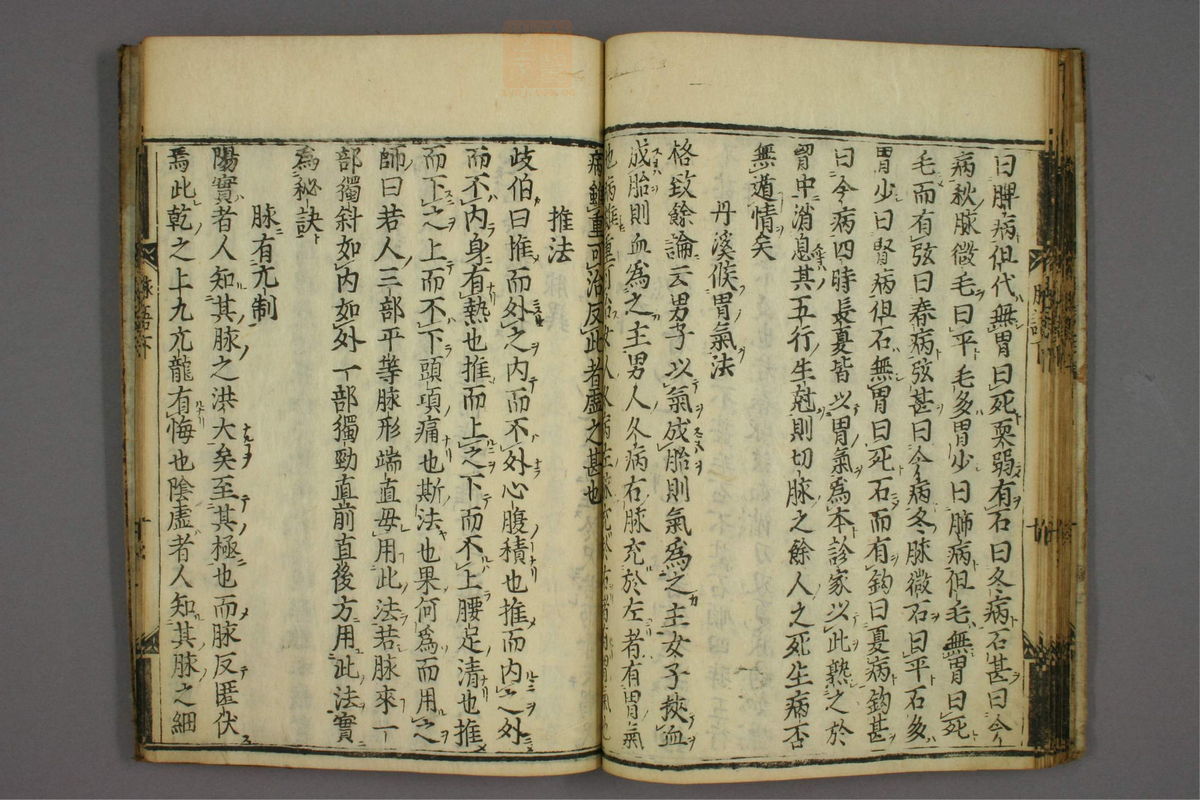 曰脾病但代無胃曰死耎弱有石曰冬病石甚曰今
病秋脉微毛曰平毛多胃少曰肺病但毛無胃曰死
毛而有弦曰春病弦甚曰今病冬脉微石曰平石多
胃少曰腎病但石無胃曰死石而有鈎曰夏病鈎甚
曰今病四時長夏皆以胃氣為本診家以此熟之於
胃中消息其五行生尅則切脉之餘人之死生病否
無遁情矣
丹溪候胃氣法
格致餘論云男子以氣成胎則氣為之主女子挾血
成胎則血為之主男人久病右脉充於左者有胃氣
也病雖重可治女人久病左脉充於右者有胃氣也
病雖重可治反此者虛之甚也
推法
歧伯曰推而外之内而不外心腹積也推而内之外
而不内身有熱也推而上之下而不上腰足清也推
而下之上而不下頭項痛也斯法也果何為而用之
師曰若人三部平等脉形端直毋用此法若脉來一
部獨斜如内如外一部獨勁直前直後方用此法實
為秘訣
脉有亢制
陽實者人知其脉之洪大矣至其極也而脉反匿伏
焉此乾之上九亢龍有悔也陰虛者人知其脉之細
脉語下